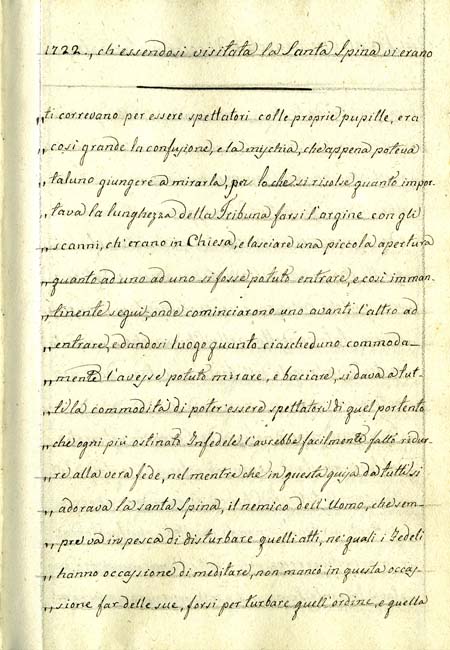 1722., ch'essendosi visitata la Santa Spina vi erano
„ti correvano per essere spettatori colle proprie pupille, era
„così grande la confusione, e la mischia, che appena poteva
„taluno giungere a mirarla, per lo che si risolse quanto impor-
„tava la lunghezza della Tribuna farsi l'argine con gli
„scanni, ch'erano in Chiesa, e lasciare una piccola apertura
„quanto ad uno ad uno si fosse potuto entrare, e così imman-
„tinente seguì, onde cominciarono uno avanti l'altro ad
„entrare, e dandosi luogo quanto ciascheduno commoda-
„mente l'avesse potuto mirare, e baciare, si dava a tut-
„ti la commodità di poter'essere spettatori di quel portento
„che ogni più ostinato Infedele l'avrebbe facilmente fatto redur-
„re alla vera fede, nel mentre che in questa guisa da tutti si
„adorava la santa Spina, il nemico dell'Uomo, che sem-
„pre va in pesca di disturbare quelli atti, ne' quali i Fedeli
„hanno occassione di meditare, non mancò in questa occas-
„sione far delle sue, forsi per turbare quell'ordine, e quella